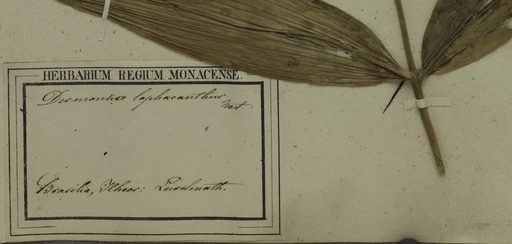 HERBARIUM REGIUM MONACENSE.
Desmoncus lophacanthus
Mart.
Brasilia, Ilheos: Luschnath.